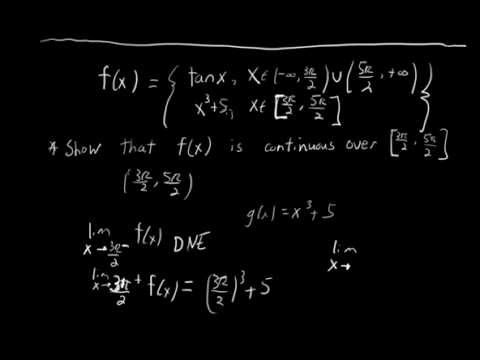 f(x) = { tanx, x∈(-∞, 3π/2) ∪ (5π/2, +∞)
x³+5, x∈ [3π/2, 5π/2] }
* Show that f(x) is continuous over [3π/2, 5π/2]
(3π/2, 5π/2)
g(x) = x³ + 5
lim x→3π/2⁻ f(x) DNE
lim x→
lim x→3π/2⁺ f(x) = (3π/2)³ + 5